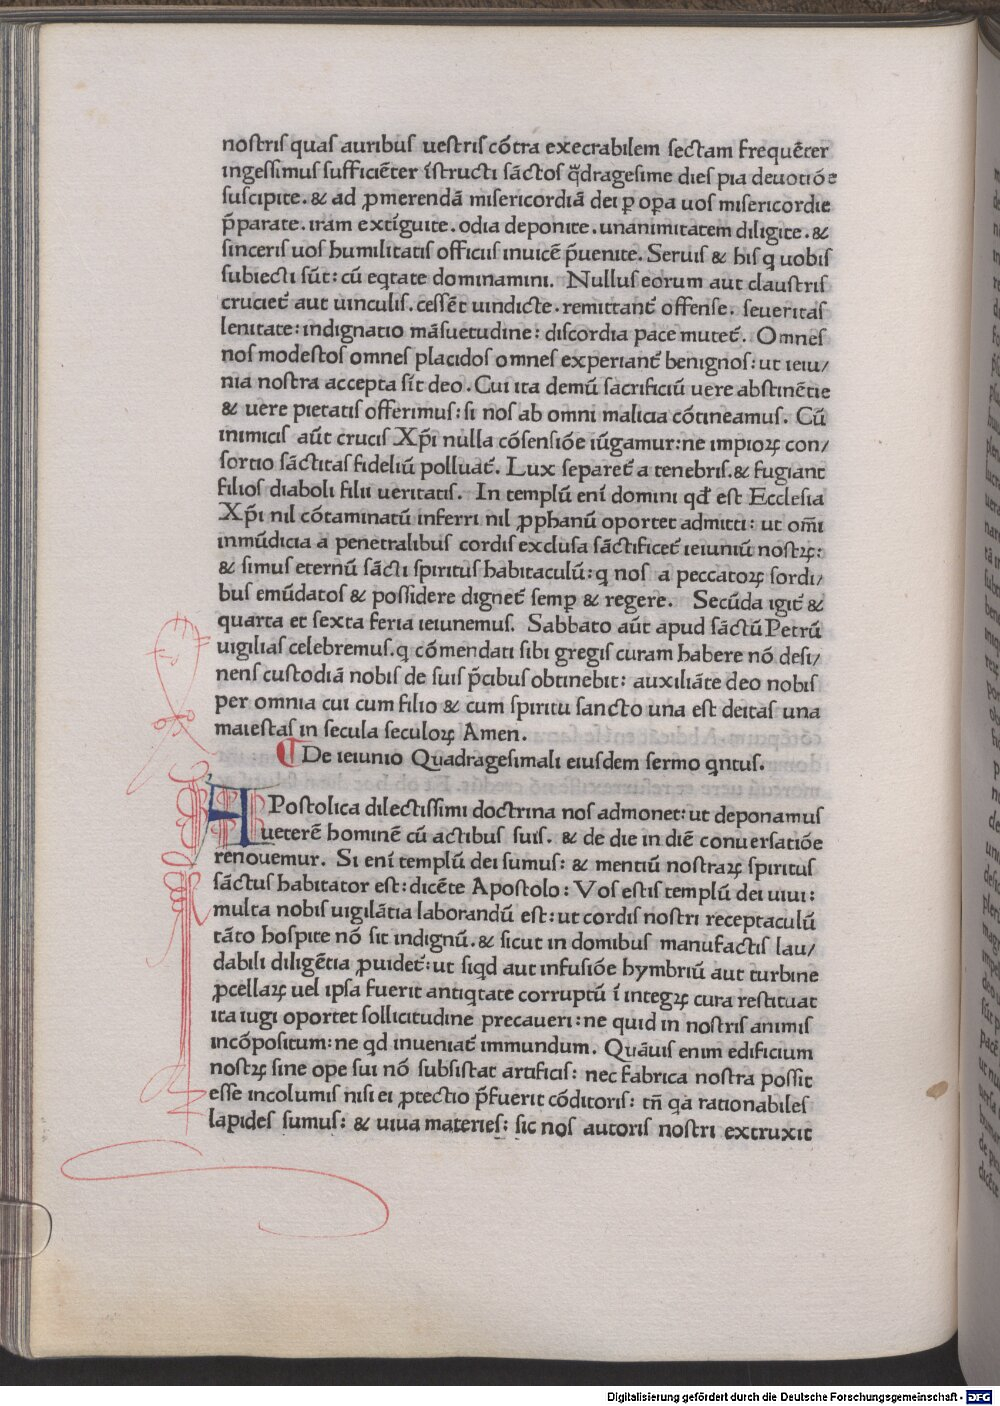 nostris quas auribus uestris cōtra execrabilem sectam frequēter
ingessimus sufficiēter īstructi sāctos q̈dragesime dies pia deuotiōe
suscipite. & ad ꝓmerendā misericordiā dei ꝑ oꝑa uos misericordie
p̄parate. iram extīguite. odia deponite. unanimitatem diligite. &
sinceris uos humilitatis officiis inuicē p̄uenite. Seruis & his q uobis
subiecti sūt: cū eqtate dominamini. Nullus eorum aut claustris
cruciet᷑ aut uinculis. cessēt uindicte. remittant᷑ offense. seueritas
lenitate: indignatio māsuetudine: discordia pace mutet᷑. Omnes
nos modestos omnes placidos omnes experiant᷑ benignos: ut ieiu/
nia nostra accepta sīt deo. Cui ita demū sacrificiū uere abstinētie
& uere pietatis offerimus: si nos ab omni malicia cōtineamus. Cū
inimicis aūt crucis Xp̄i nulla cōsensiōe iūgamur: ne impioꝝ con/
sortio sāctitas fideliū polluat᷑. Lux separet᷑ a tenebris. & fugiant
filios diaboli filii ueritatis. In templū enī domini qđ est Ecclesia
Xp̄i nil cōtaminatū inferri nil ꝓphanū oportet admitti: ut om̄i
inmūdicia a penetralibus cordis exclusa sāctificet᷑ ieiuniū nostꝝ:
& simus eternū sācti spiritus habitaculū: q nos a peccatoꝝ sordi/
bus emūdatos & possidere dignet᷑ semꝑ & regere. Secūda igit᷑ &
quarta et sexta feria ieiunemus. Sabbato aūt apud sāctū Petrū
uigilias celebremus. q cōmendati sibi gregis curam habere nō desi/
nens custodiā nobis de suis p̄cibus obtinebit: auxiliāte deo nobis
per omnia cui cum filio & cum spiritu sancto una est deitas una
maiestas in secula seculoꝝ Amen.
¶ De ieiunio Quadragesimali eiusdem sermo qntus.
APostolica dilectissimi doctrina nos admonet: ut deponamus
ueterē hominē cū actibus suis. & de die in diē conuersatiōe
renouemur. Si enī templū dei sumus: & mentiū nostraꝝ spiritus
sāctus habitator est: dicēte Apostolo: Vos estis templū dei uiui:
multa nobis uigilātia laborandū est: ut cordis nostri receptaculū
tāto hospite nō sit indignū. & sicut in domibus manufactis lau/
dabili diligētia ꝓuidet᷑: ut siqd aut infusiōe hymbriū aut turbine
ꝓcellaꝝ uel ipsa fuerit antiqtate corruptū ī integꝝ cura restituat
ita iugi oportet sollicitudine precaueri: ne quid in nostris animis
incōpositum: ne qd inueniat᷑ immundum. Quāuis enim edificium
nostꝝ sine ope sui nō subsistat artificis: nec fabrica nostra possit
esse incolumis nisi ei ꝓtectio p̄fuerit cōditoris: tn̄ qa rationabiles
lapides sumus: & uiua materies: sic nos autoris nostri extruxit
Digitalisierung gefördert durch die Deutsche Forschungsgemeinschaft - DFG